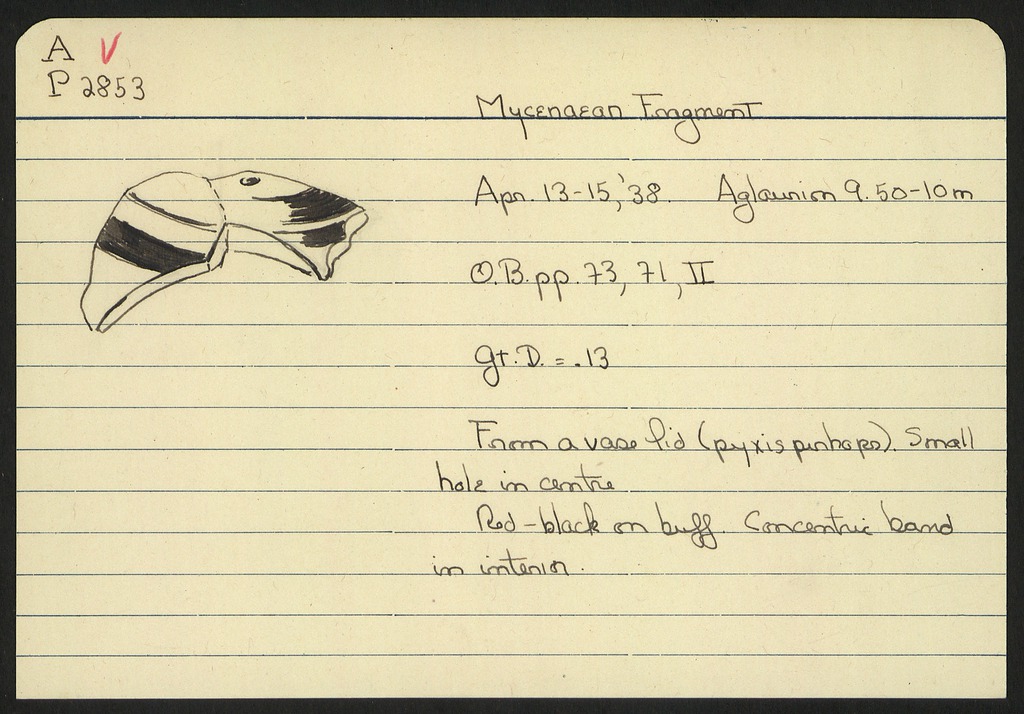 A V
P 2853
Mycenaean Fragment
Apr. 13-15, '38. Aglaurion 9.50-10m
O.B. pp. 73, 71, II
Gt. D. = .13
From a vase lid (pyxis perhaps). Small
hole in centre
Red-black on buff. Concentric band
in interior.